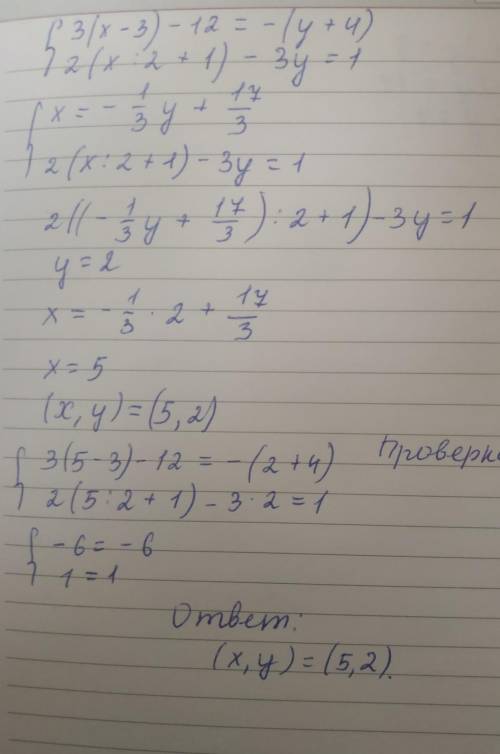 { 3(x - 3) - 12 = - (y + 4)
2(x : 2 + 1) - 3y = 1
{ x = - 1/3 y + 17/3
2(x : 2 + 1) - 3y = 1
2((- 1/3 y + 17/3) : 2 + 1) - 3y = 1
y = 2
x = - 1/3 · 2 + 17/3
x = 5
(x, y) = (5, 2)
{ 3(5 - 3) - 12 = - (2 + 4) Проверк
2(5 : 2 + 1) - 3 · 2 = 1
{ - 6 = - 6
1 = 1
Ответ:
(x, y) = (5, 2).